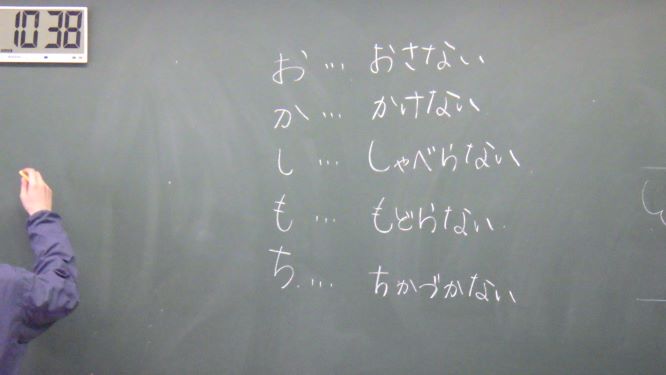 10 38
お … おさない
か … かけない
し … しゃべらない
も … もどらない
ち … ちかづかない